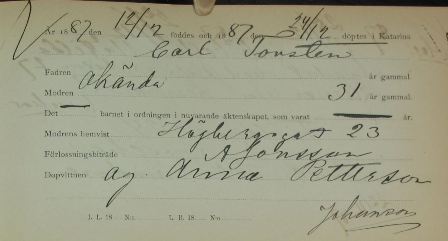 År 1887 den 12/12 föddes och 1887 den 24/12 döptes i Katarina
Carl Torsten
Fadren
okända år gammal.
Modren 31 år gammal.
Det — barnet i ordningen i nuvarande äktenskapet, som varat — år.
Modrens hemvist Högbergsgat 23
Förlossningsbiträde A Jonsson
Dopvittnen ag. Anna Petterson
Johanson
L. L. 18 No: L. B. 18 No: